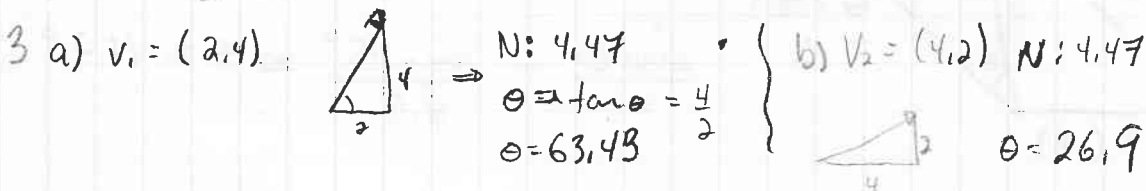 3 a) v₁ = (2,4)
4
2
⇒ N: 4,47
θ ⇒ tan θ = 4/2
θ = 63,43
b) V₂ = (4,2) N: 4,47
2
4
θ = 26,9